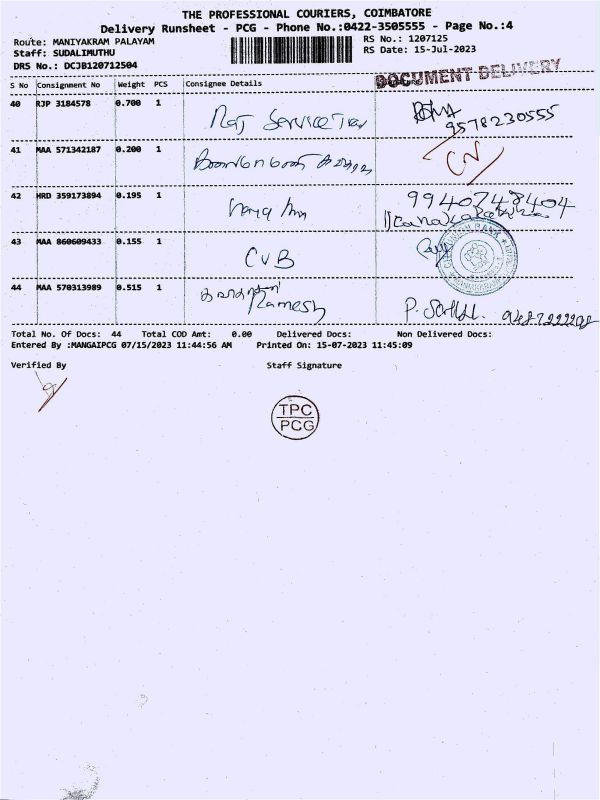 THE PROFESSIONAL COURIERS, COIMBATORE
Delivery Runsheet - PCG - Phone No.:0422-3505555 - Page No.:4
Route: MANIYAKRAM PALAYAM
RS No.: 1207125
Staff: SUDALIMUTHU
RS Date: 15-Jul-2023
DRS No.: DCJB120712504
DOCUMENT DELIVERY
S No Consignment No Weight PCS Consignee Details
40 RJP 3184578 0.700 1
9578230555
41 MAA 571342187 0.200 1
42 HRD 359173894 0.195 1
9940748404
43 MAA 860609433 0.155 1 CVB
44 MAA 570313989 0.515 1
Ramesh
Total No. Of Docs: 44 Total COD Amt: 0.00 Delivered Docs: Non Delivered Docs:
Entered By :MANGAIPCG 07/15/2023 11:44:56 AM Printed On: 15-07-2023 11:45:09
Verified By Staff Signature
TPC
PCG